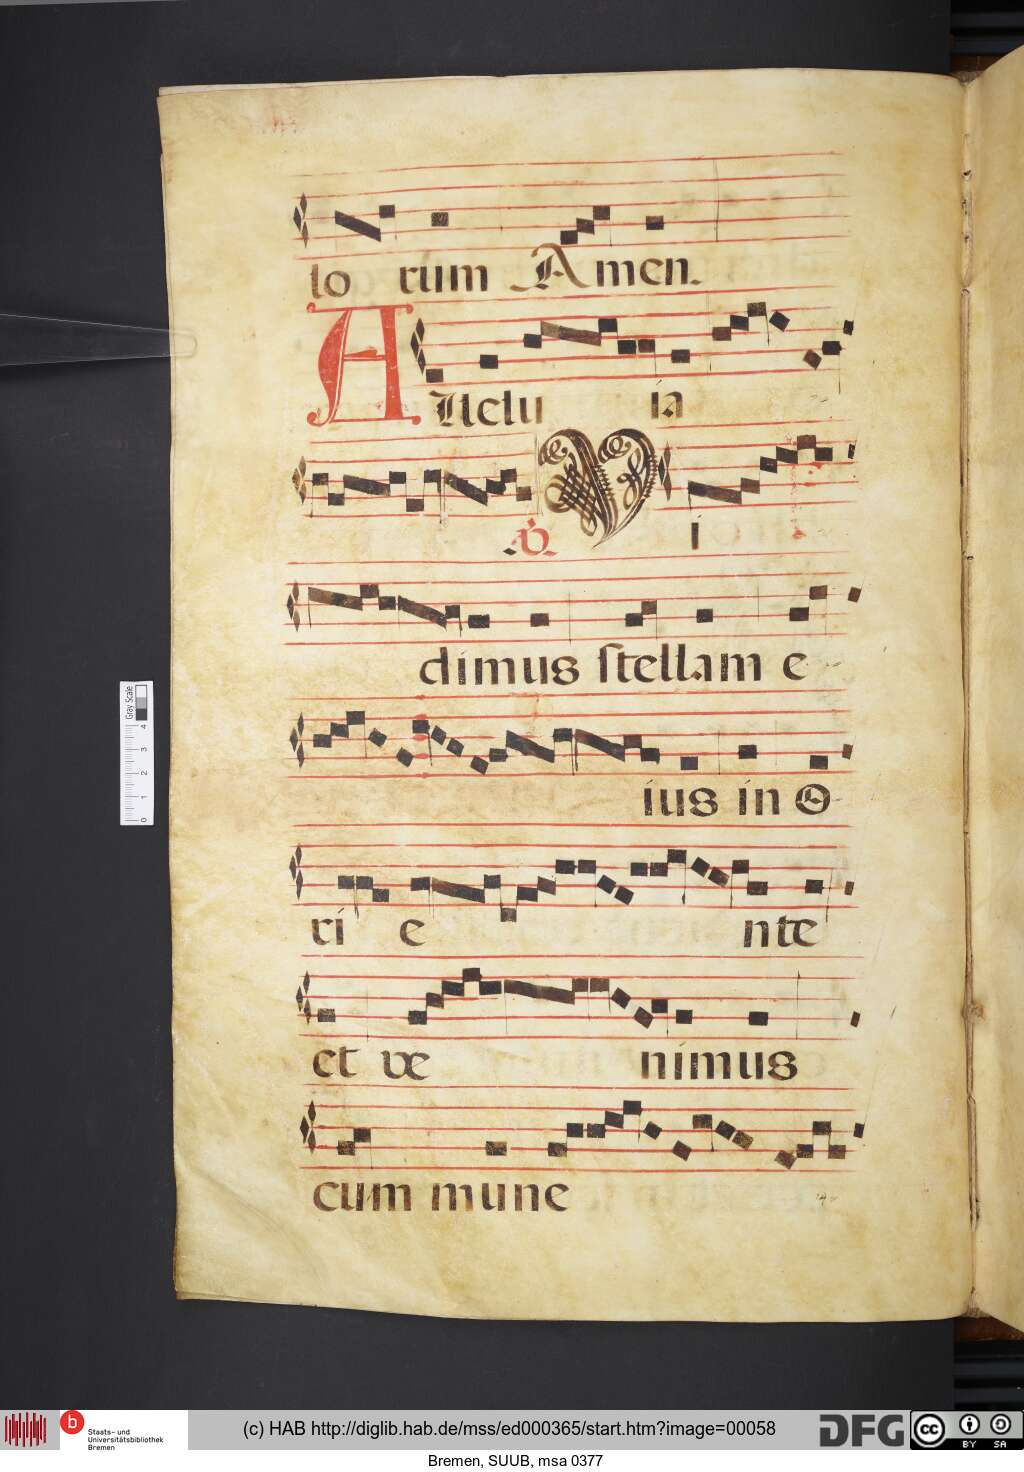 lo rum Amen.
Alletu ia
℣. V i
dimus stellam e
ius in O
ri e nte
et ve nimus
cum mune
Gray Scale
0 1 2 3 4
b Staats- und Universitätsbibliothek Bremen
(c) HAB http://diglib.hab.de/mss/ed000365/start.htm?image=00058
DFG
cc BY SA
Bremen, SUUB, msa 0377